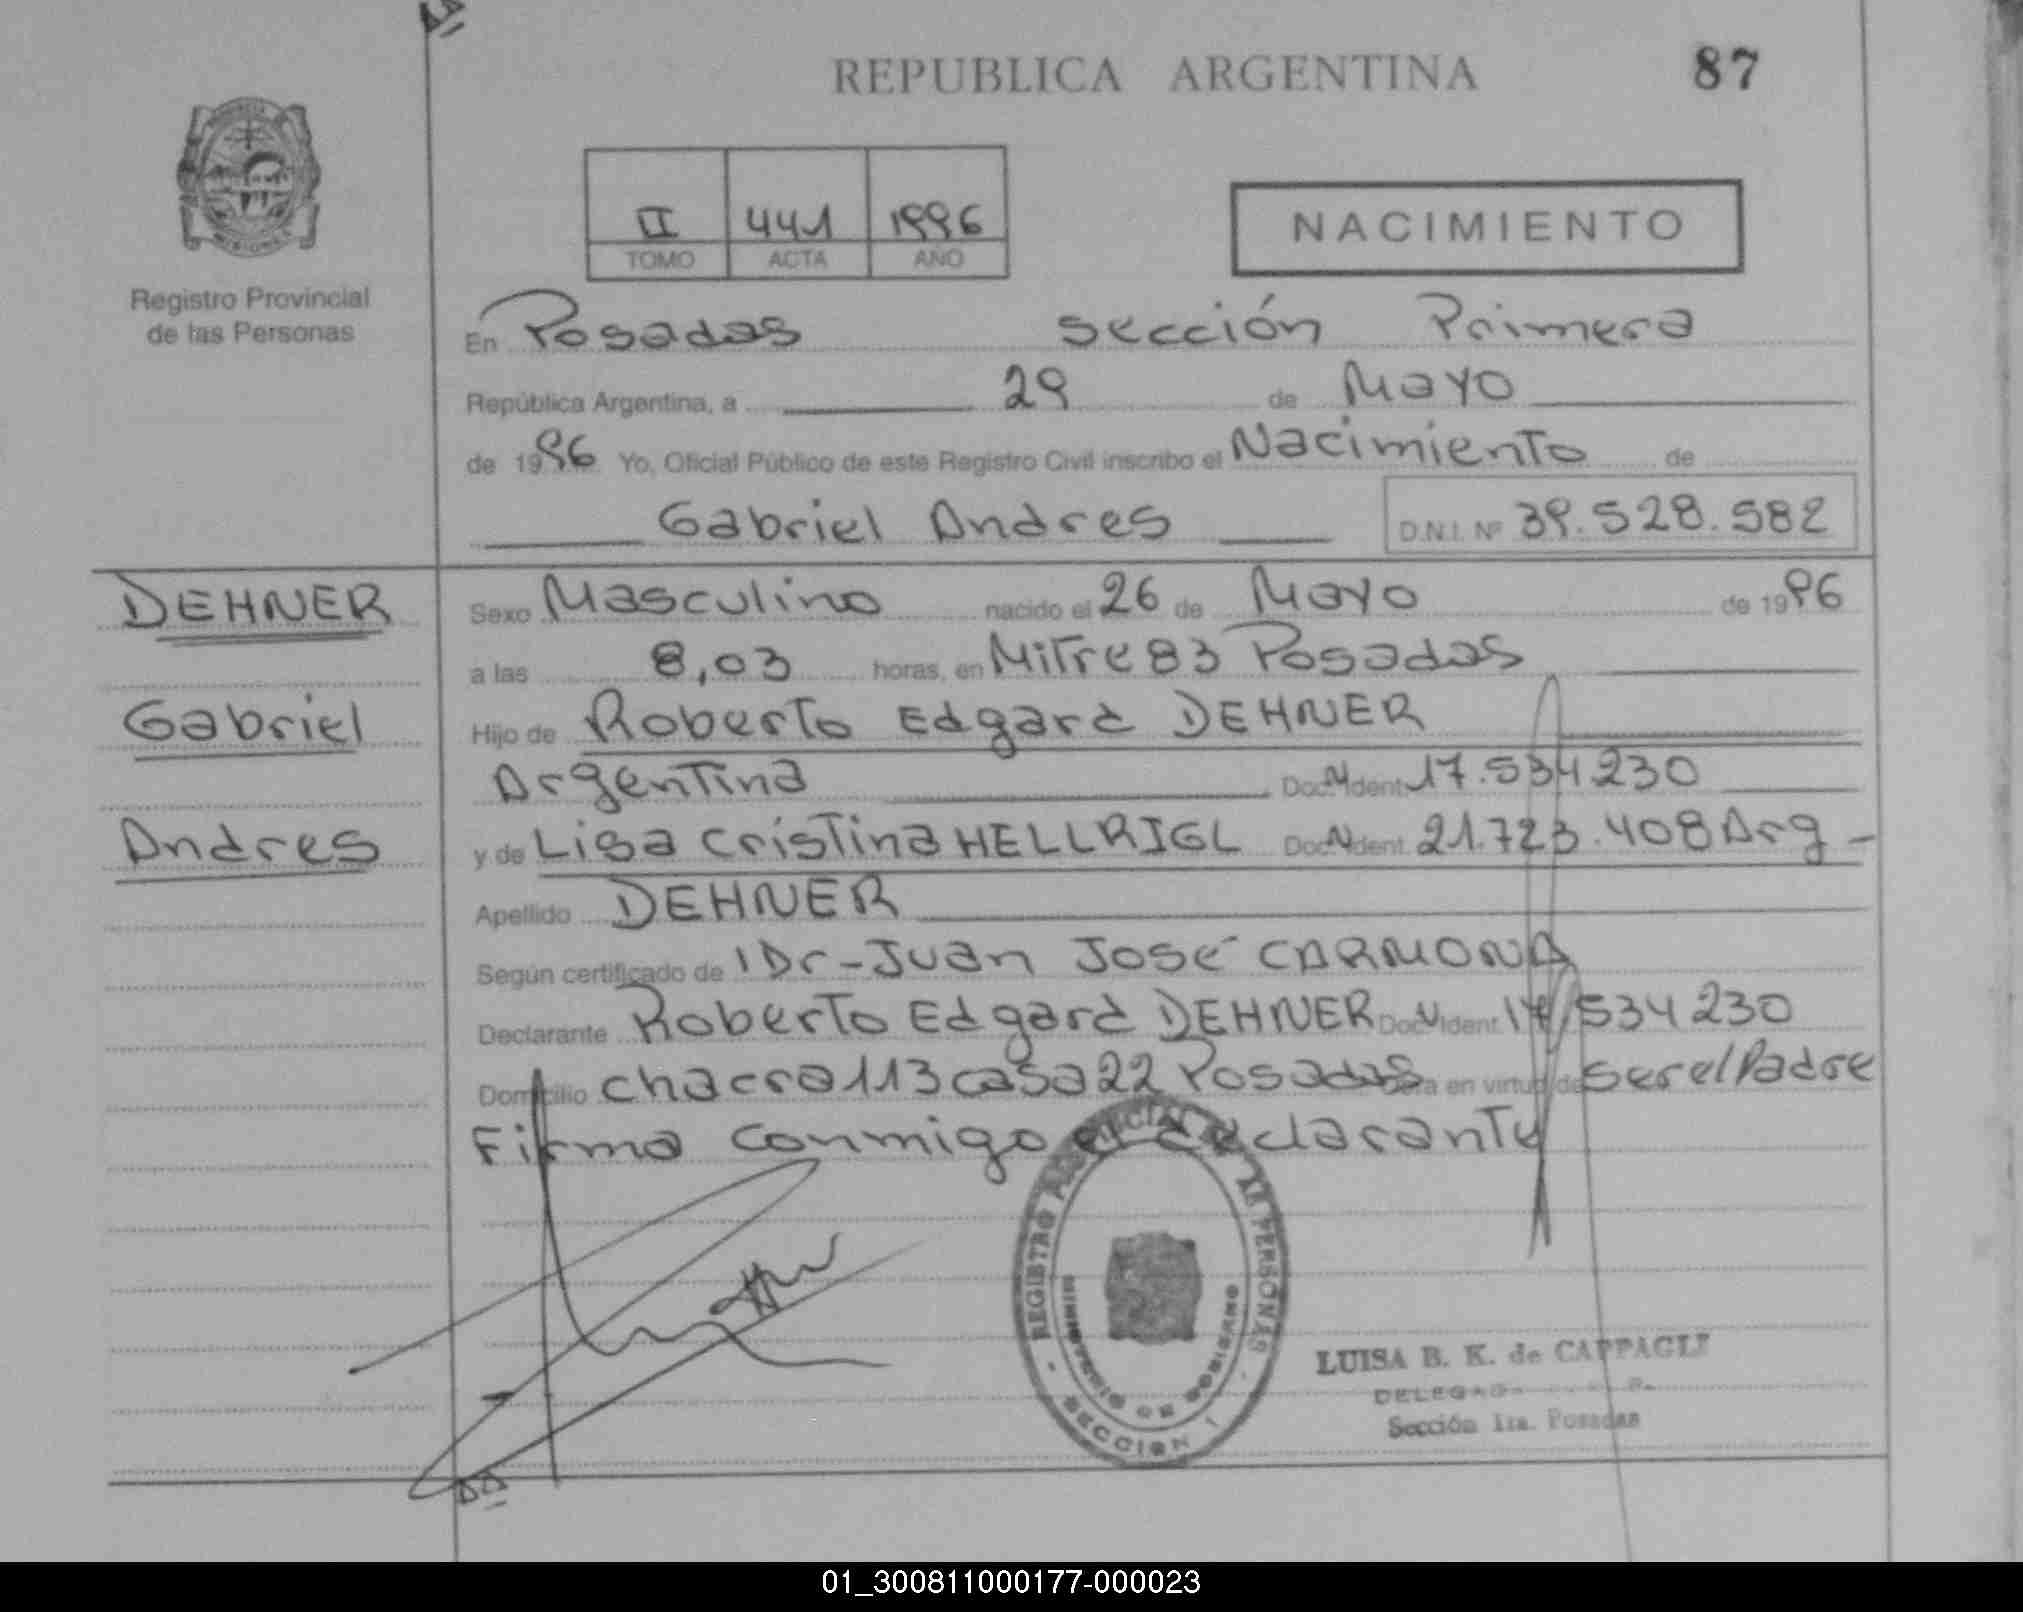 REPUBLICA ARGENTINA
87
II 441 1996
TOMO ACTA AÑO
NACIMIENTO
Registro Provincial
de las Personas
En Posadas Sección Primera
República Argentina, a 29 de Mayo
de 1996 Yo, Oficial Público de este Registro Civil inscribo el Nacimiento de
Gabriel Andres D.N.I. Nº 39.528.582
DEHNER
Gabriel
Andres
Sexo Masculino nacido el 26 de Mayo de 1996
a las 8,03 horas, en Mitre 83 Posadas
Hijo de Roberto Edgard DEHNER
Argentina Doc. Ident. 17.534230
y de Lisa Cristina HELLRIGL Doc. Ident. 21.723.408 Arg
Apellido DEHNER
Según certificado de Dr-Juan José CARMONA
Declarante Roberto Edgard DEHNER Doc. Ident. 17534230
Domicilio chacra 113 casa 22 Posadas en virtud de ser el Padre
Firma conmigo el declarante
REGISTRO DE LAS PERSONAS
MINISTERIO DE GOBIERNO
- SECCION 1 -
LUISA B. K. de CAPPAGLI
Sección 1ra. Posadas
01_300811000177-000023